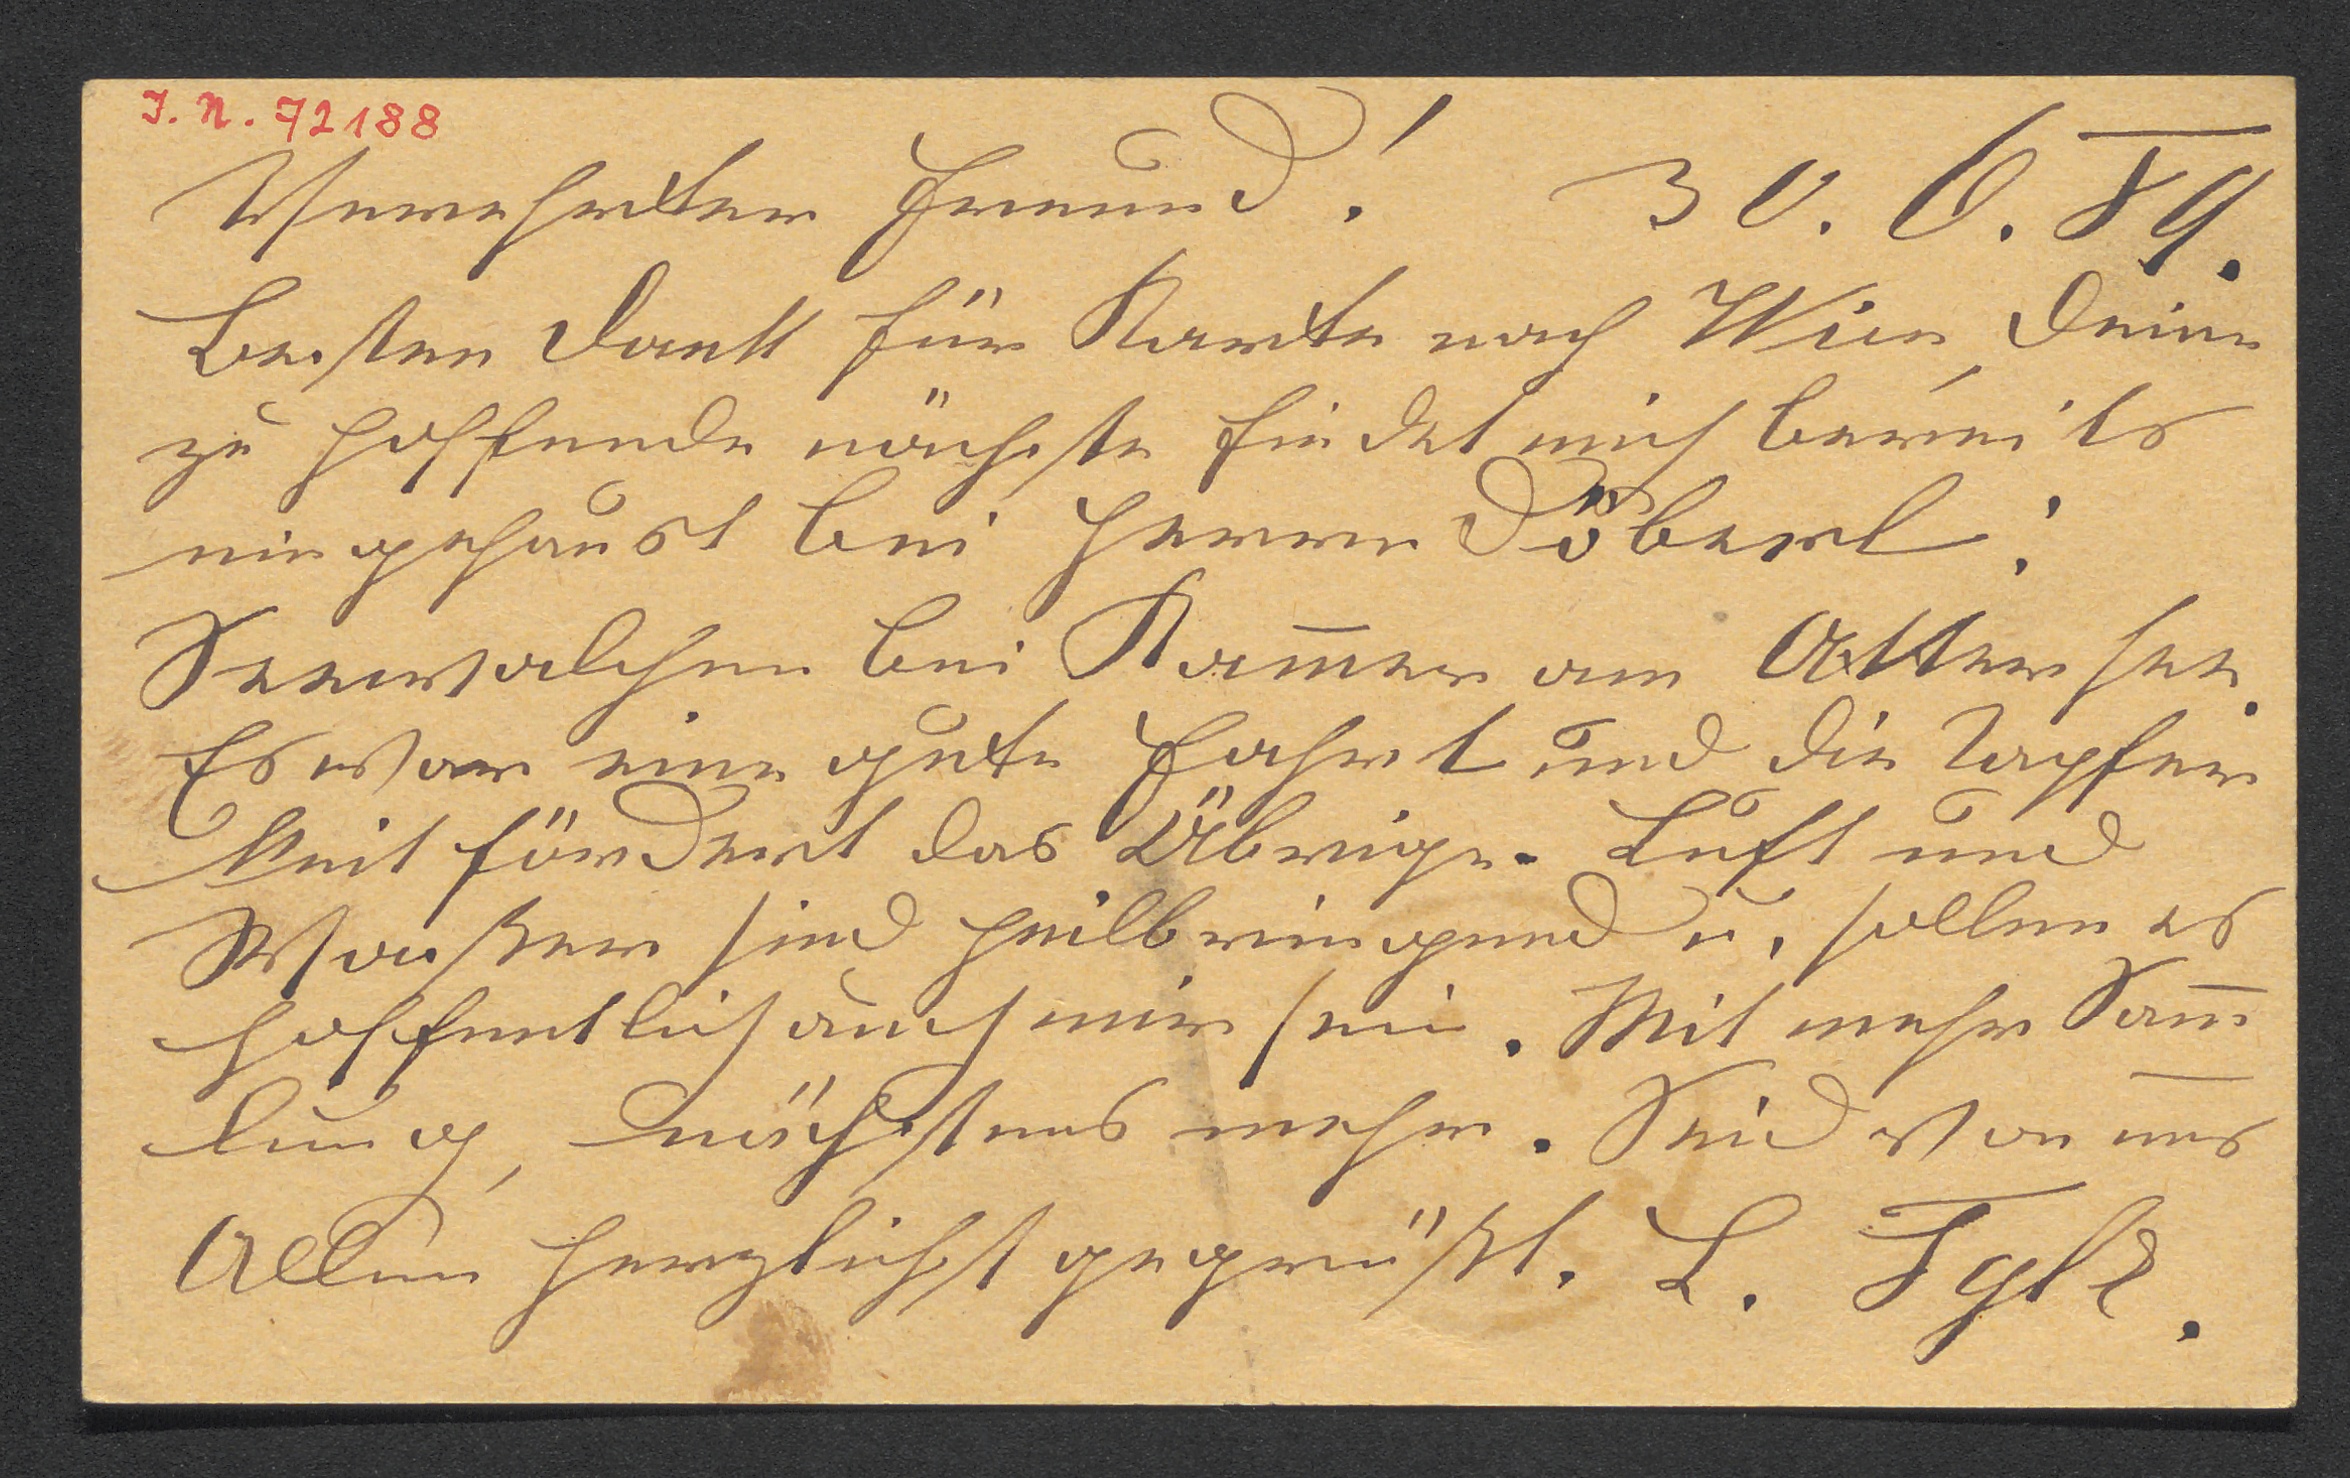 I. N. 72188
Verehrter Freund! 30. 6. 89.
Besten Dank für Karte nach Wien, Deine
zu hoffende nächste findet mich bereits
eingehaust bei Herrn Döberl:
Seewalchen bei Kam̅er am Attersee.
Es war eine gute Fahrt und die Tapfer
keit fördert das Übrige. Luft und
Wasser sind heilbringend u. sollen es
hoffentlich auch mir sein. Mit mehr Sam̅
lung, demnächstens mehr. Seid von uns
Allen herzlichst gegrüßt. L.